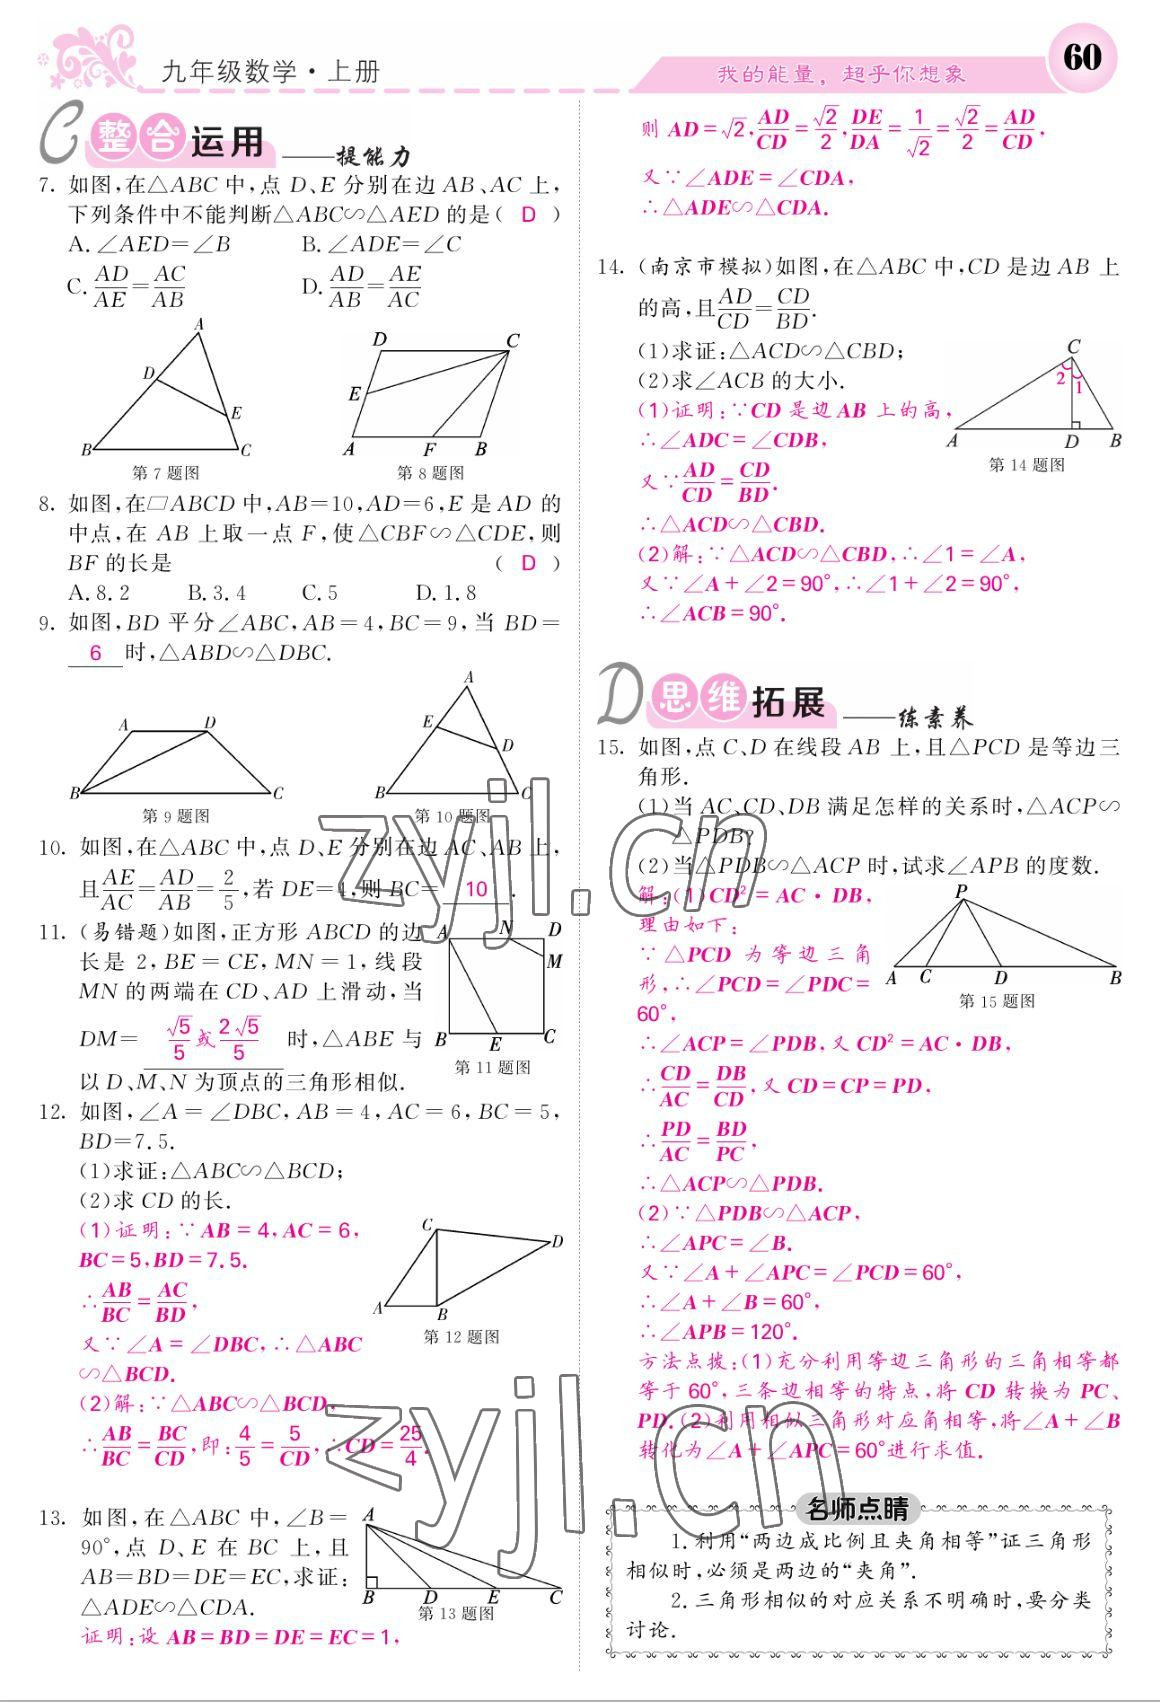 九年级数学·上册
我的能量，超乎你想象
60
C 整合运用 ——提能力
7. 如图,在△ABC 中,点 D、E 分别在边 AB、AC 上,
下列条件中不能判断△ABC∽△AED 的是( D )
A. ∠AED=∠B  B. ∠ADE=∠C
C. AD/AE=AC/AB  D. AD/AB=AE/AC
A D E B C
第 7 题图
D C E A F B
第 8 题图
8. 如图,在▱ABCD 中,AB=10,AD=6,E 是 AD 的
中点,在 AB 上取一点 F,使△CBF∽△CDE,则
BF 的长是 ( D )
A. 8.2  B. 3.4  C. 5  D. 1.8
9. 如图,BD 平分∠ABC,AB=4,BC=9,当 BD=
6 时,△ABD∽△DBC.
A D B C
第 9 题图
A E D B C
第 10 题图
10. 如图,在△ABC 中,点 D、E 分别在边 AC、AB 上,
且AE/AC=AD/AB=2/5,若 DE=4,则 BC= 10 .
11. (易错题)如图,正方形 ABCD 的边
长是 2,BE=CE,MN=1,线段
MN 的两端在 CD、AD 上滑动,当
DM= √5/5或2√5/5 时,△ABE 与
以 D、M、N 为顶点的三角形相似.
A N D M B E C
第 11 题图
12. 如图,∠A=∠DBC,AB=4,AC=6,BC=5,
BD=7.5.
(1)求证:△ABC∽△BCD;
(2)求 CD 的长.
(1)证明:∵AB=4,AC=6,
BC=5,BD=7.5.
∴AB/BC=AC/BD,
又∵∠A=∠DBC,∴△ABC
∽△BCD.
(2)解:∵△ABC∽△BCD,
∴AB/BC=BC/CD,即:4/5=5/CD,∴CD=25/4.
C D A B
第 12 题图
13. 如图,在△ABC 中,∠B=
90°,点 D、E 在 BC 上,且
AB=BD=DE=EC,求证:
△ADE∽△CDA.
证明:设 AB=BD=DE=EC=1,
A B D E C
第 13 题图
则 AD=√2,AD/CD=√2/2,DE/DA=1/√2=√2/2=AD/CD,
又∵∠ADE=∠CDA,
∴△ADE∽△CDA.
14. (南京市模拟)如图,在△ABC 中,CD 是边 AB 上
的高,且AD/CD=CD/BD.
(1)求证:△ACD∽△CBD;
(2)求∠ACB 的大小.
(1)证明:∵CD 是边 AB 上的高,
∴∠ADC=∠CDB,
又∵AD/CD=CD/BD.
∴△ACD∽△CBD.
(2)解:∵△ACD∽△CBD,∴∠1=∠A,
又∵∠A+∠2=90°,∴∠1+∠2=90°,
∴∠ACB=90°.
C 2 1 A D B
第 14 题图
D 思维拓展 ——练素养
15. 如图,点 C、D 在线段 AB 上,且△PCD 是等边三
角形.
(1)当 AC、CD、DB 满足怎样的关系时,△ACP∽
△PDB?
(2)当△PDB∽△ACP 时,试求∠APB 的度数.
解:(1)CD²=AC·DB,
理由如下:
∵△PCD 为等边三角
形,∴∠PCD=∠PDC=
60°,
∴∠ACP=∠PDB,又 CD²=AC·DB,
∴CD/AC=DB/CD,又 CD=CP=PD,
∴PD/AC=BD/PC,
∴△ACP∽△PDB.
(2)∵△PDB∽△ACP,
∴∠APC=∠B.
又∵∠A+∠APC=∠PCD=60°,
∴∠A+∠B=60°,
∴∠APB=120°.
P A C D B
第 15 题图
方法点拨:(1)充分利用等边三角形的三角相等都
等于 60°,三条边相等的特点,将 CD 转换为 PC、
PD.(2)利用相似三角形对应角相等,将∠A+∠B
转化为∠A+∠APC=60°进行求值.
名师点睛
1. 利用“两边成比例且夹角相等”证三角形
相似时,必须是两边的“夹角”.
2. 三角形相似的对应关系不明确时,要分类
讨论.
zyjl.cn
zyjl.cn